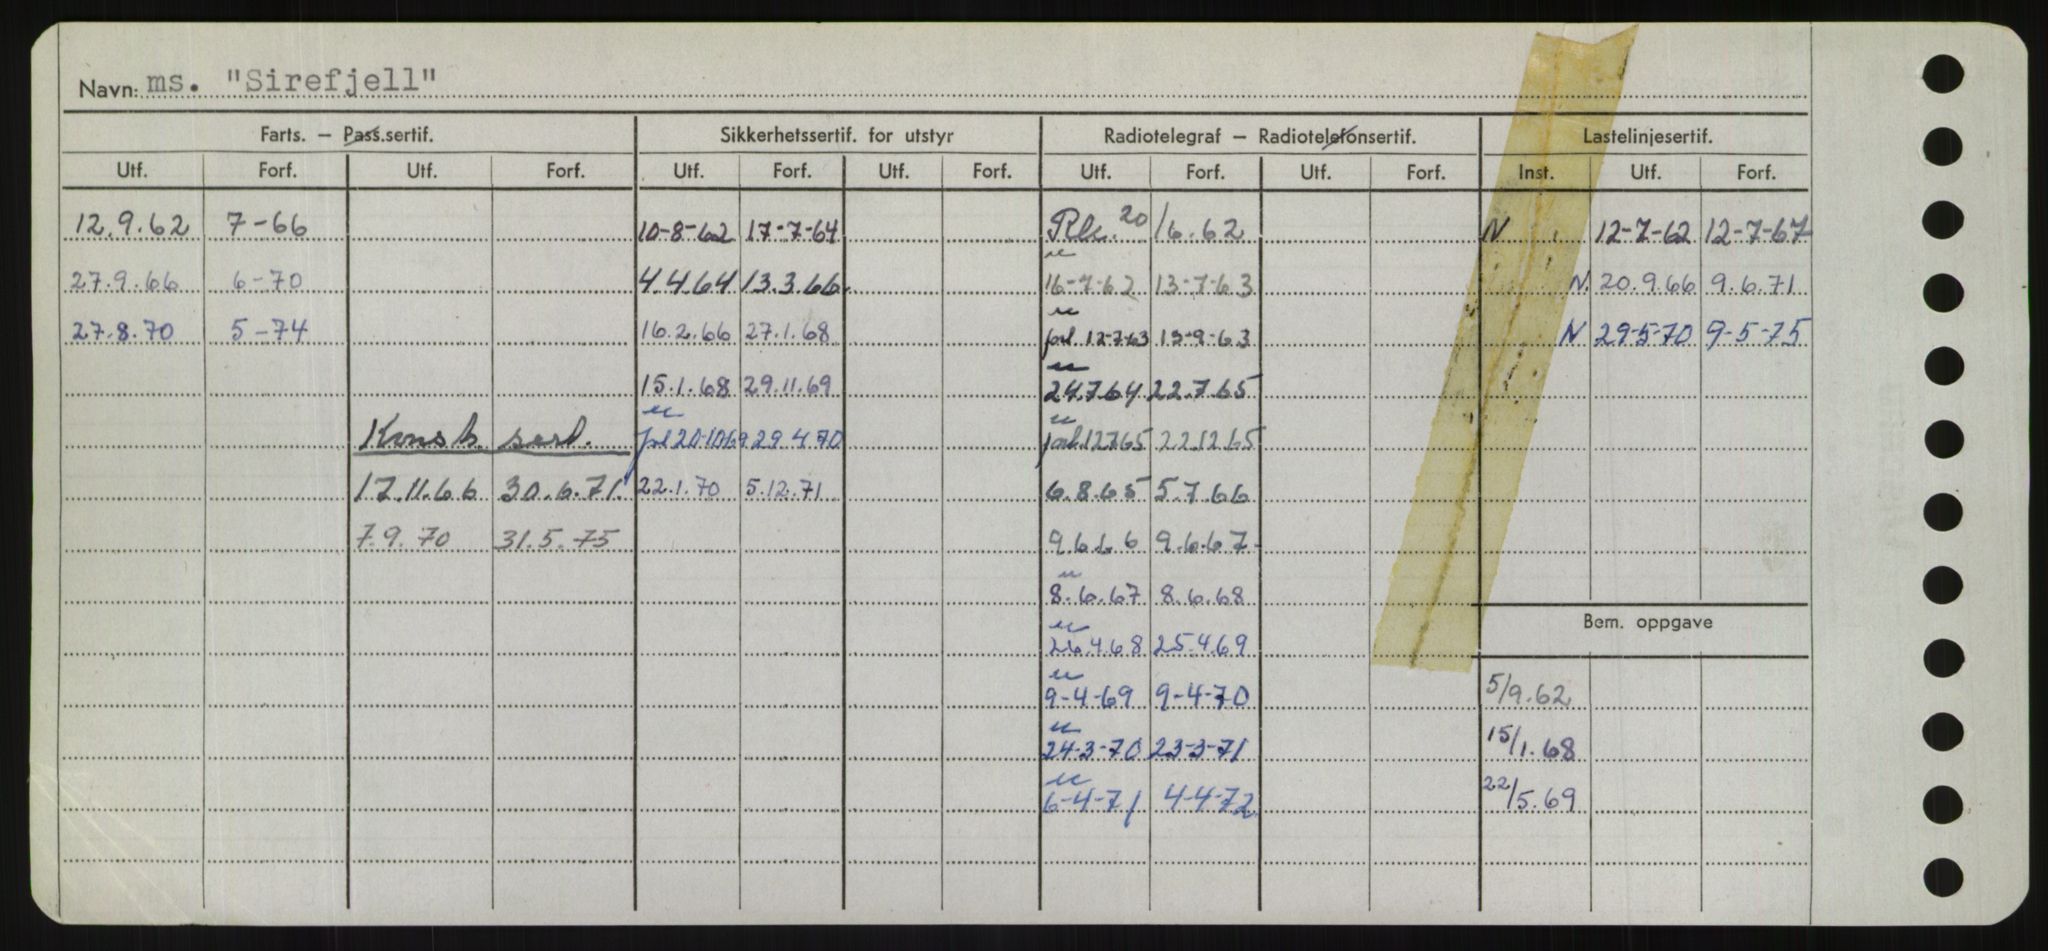 Navn: ms. "Sirefjell"
Farts. – Pass.sertif. Sikkerhetssertif. for utstyr Radiotelegraf – Radiotelefonsertif. Lastelinjesertif.
Utf. Forf. Utf. Forf. Utf. Forf. Utf. Forf. Utf. Forf. Utf. Forf. Inst. Utf. Forf.
12.9.62 7-66 10-8-62 17-7-64 20/6.62 N 12-7-62 12-7-67
27.9.66 6-70 4.4.64 13.3.66 16-7-62 13-7-63 N 20.9.66 9.6.71
27.8.70 5-74 16.2.66 27.1.68 forl 12-7-63 13-9-63 N 29-5-70 9-5-75
15.1.68 29.11.69 24.7.64 22.7.65
Konstr. sert. forl 20-10-69 29.4.70 forl. 12.7.65 22.12.65
17.11.66 30.6.71. 22.1.70 5.12.71 6.8.65 5.7.66
7.9.70 31.5.75 9.6.66 9.6.67
8.6.67 8.6.68
Bem. oppgave
26.4.68 25.4.69
9-4-69 9-4-70 5/9.62
24-3-70 23-3-71 15/1.68
6-4-71 4-4-72 22/5.69